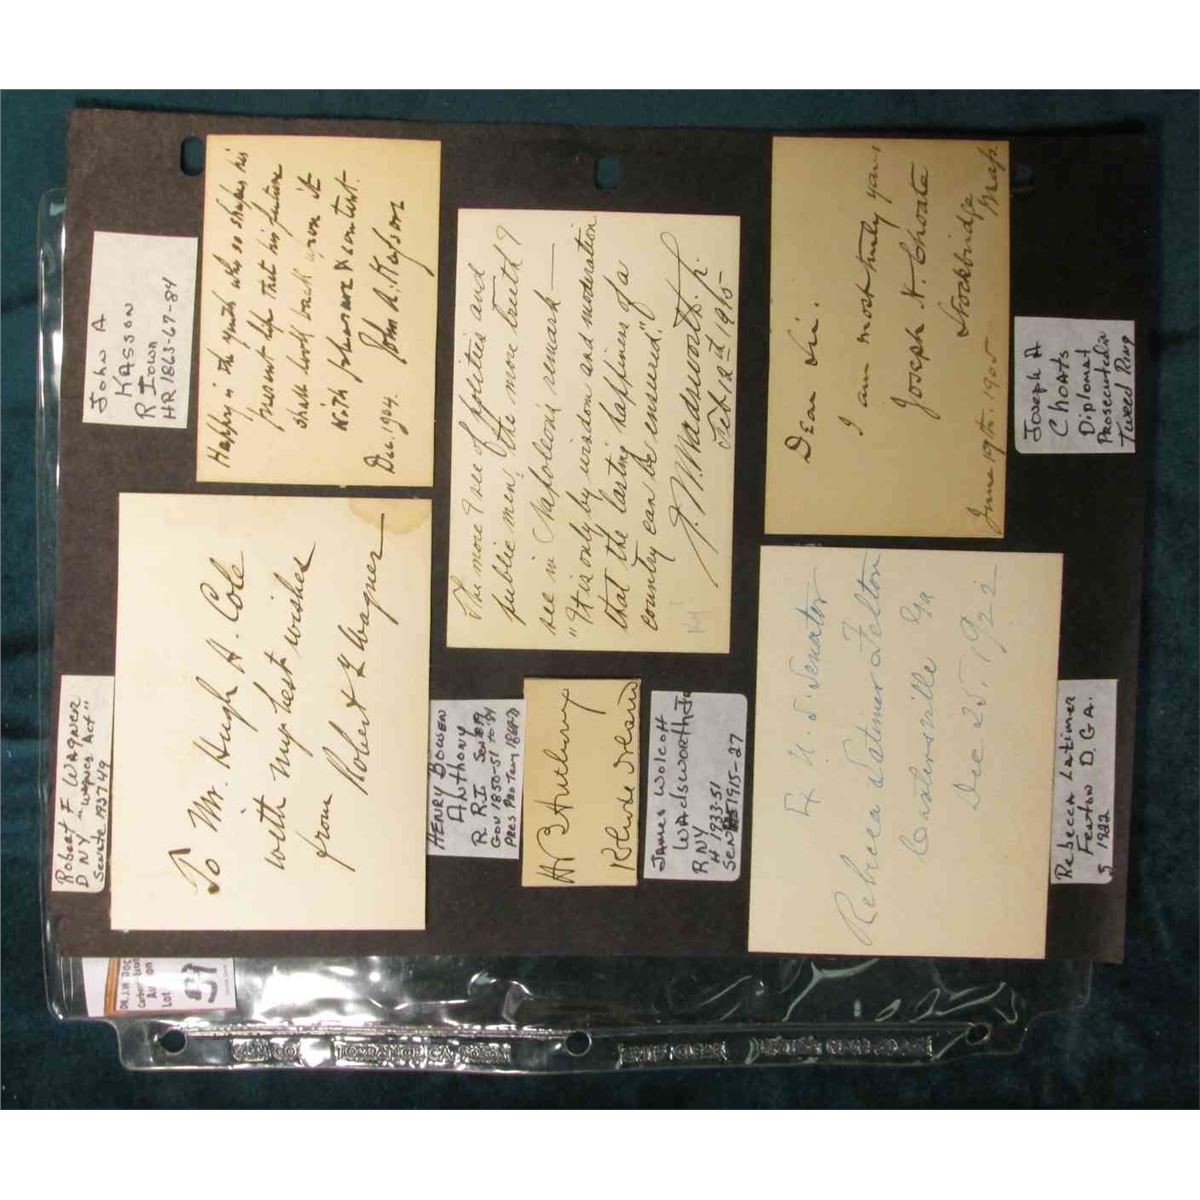 John A
KASSON
R Iowa
HR 1863-67-84
Happy is the youth who so shapes his
present life that his future
shall look back upon it
with pleasure & content.
Dec. 1904. John A. Kasson
The more I see of politics and
public men, the more truth I
see in Napoleon's remark —
"It is only by wisdom and moderation
that the lasting happiness of a
country can be ensured."
J. W. Wadsworth Jr.
Feb. 12th 1915
Dear Sir:
I am most truly yours
Joseph H. Choate
Stockbridge
Mass.
June 19th. 1905
Joseph A
Choate
Diplomat
Prosecuted in
Tweed Ring
Robert F. WAGNER
D NY "Wagner Act"
Senate 1937.49
To Mr. Hugh A. Cole
with my best wishes
from Robert F Wagner
HENRY BOWEN
ANTHONY
R R.I.
Gov 1850-51
Pres Pro Tem
H B Anthony
Rhode Island
James Wolcott
WAdsworth Jr
R NY
H 1933-51
Sen 1915-27
Ex U. S. Senator
Rebecca Latimer Felton
Cartersville Ga
Dec 25. 1922
Rebecca Latimer
Featon D. GA.
S 1922
DR. J.W. DOC
Auction
Lot